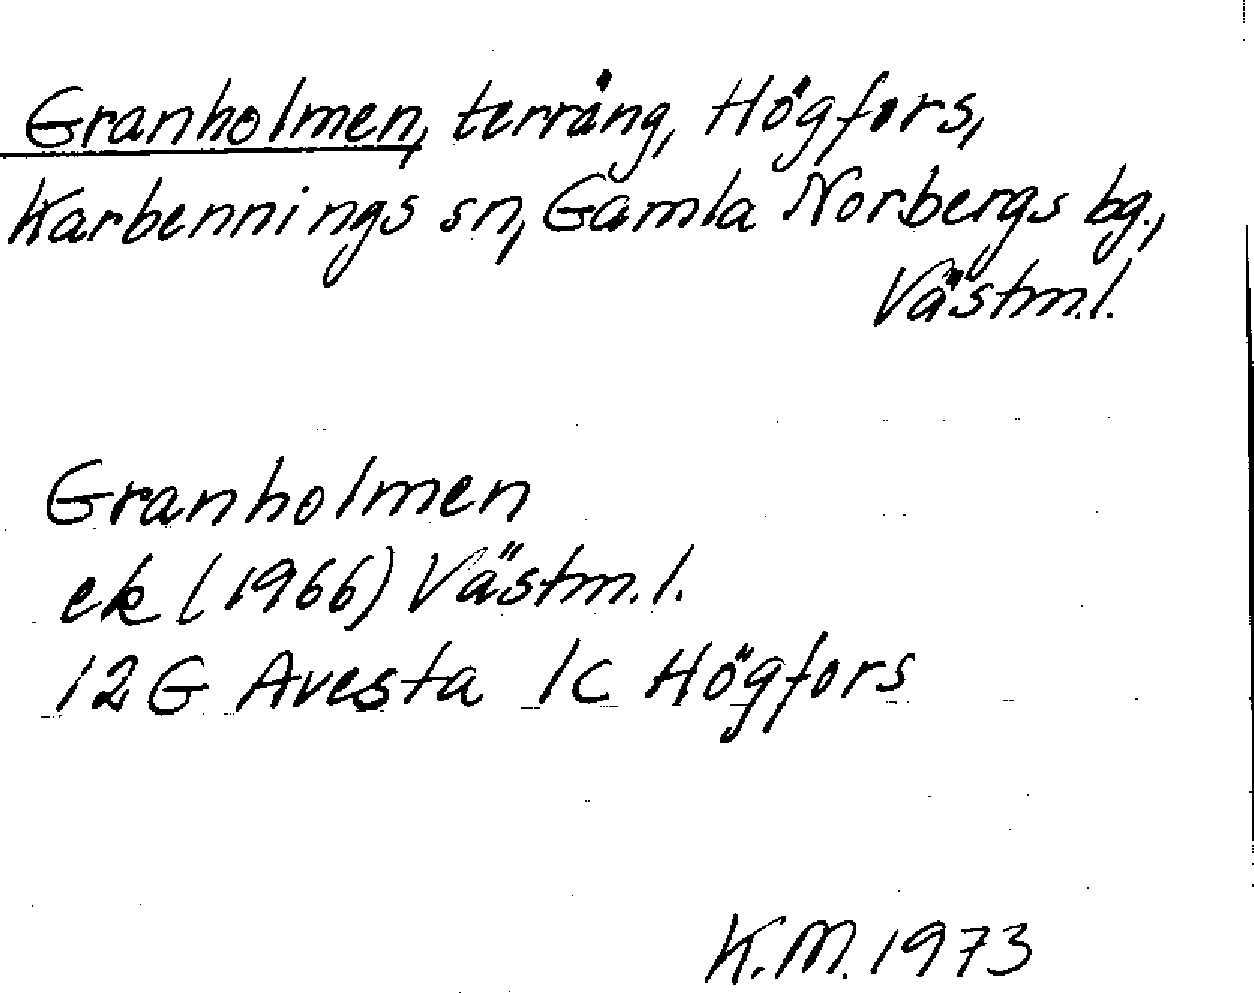 Granholmen, terräng, Högfors,
Karbennings sn, Gamla Norbergs bg.,
Västm.l.
Granholmen
ek (1966) Västm.l.
12G Avesta 1c Högfors
K.M. 1973